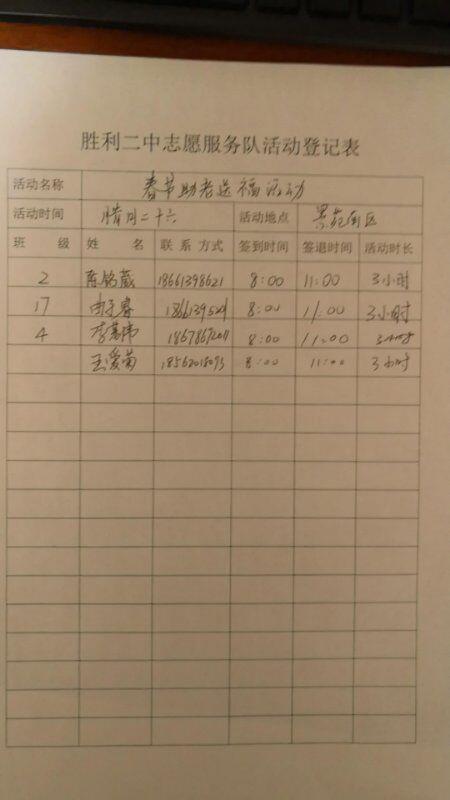 胜利二中志愿服务队活动登记表
活动名称 春节助老送福活动
活动时间 腊月二十六 活动地点 景苑南区
班 级 姓 名 联系方式 签到时间 签退时间 活动时长
2 陈铭葳 18661398621 8:00 11:00 3小时
17 8:00 11:00 3小时
4 李慕伟 8:00 11:00 3小时
王爱菊 18562018093 8:00 11:00 3小时